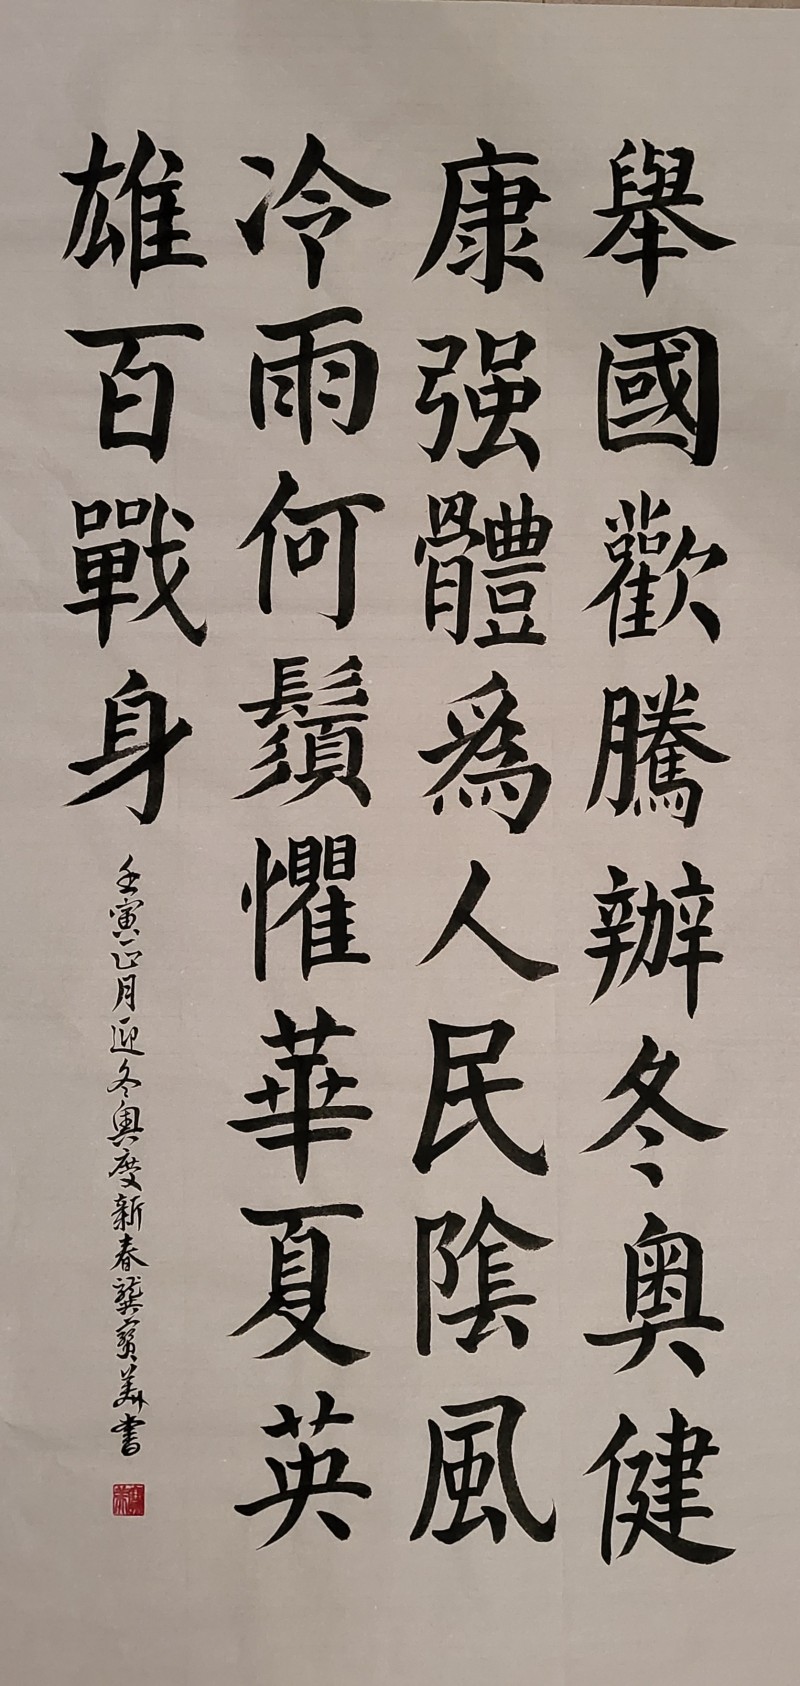 舉國歡騰辦冬奧健
康强體爲人民陰風
冷雨何鬚懼華夏英
雄百戰身
壬寅正月迎冬奧度新春龔寶美書